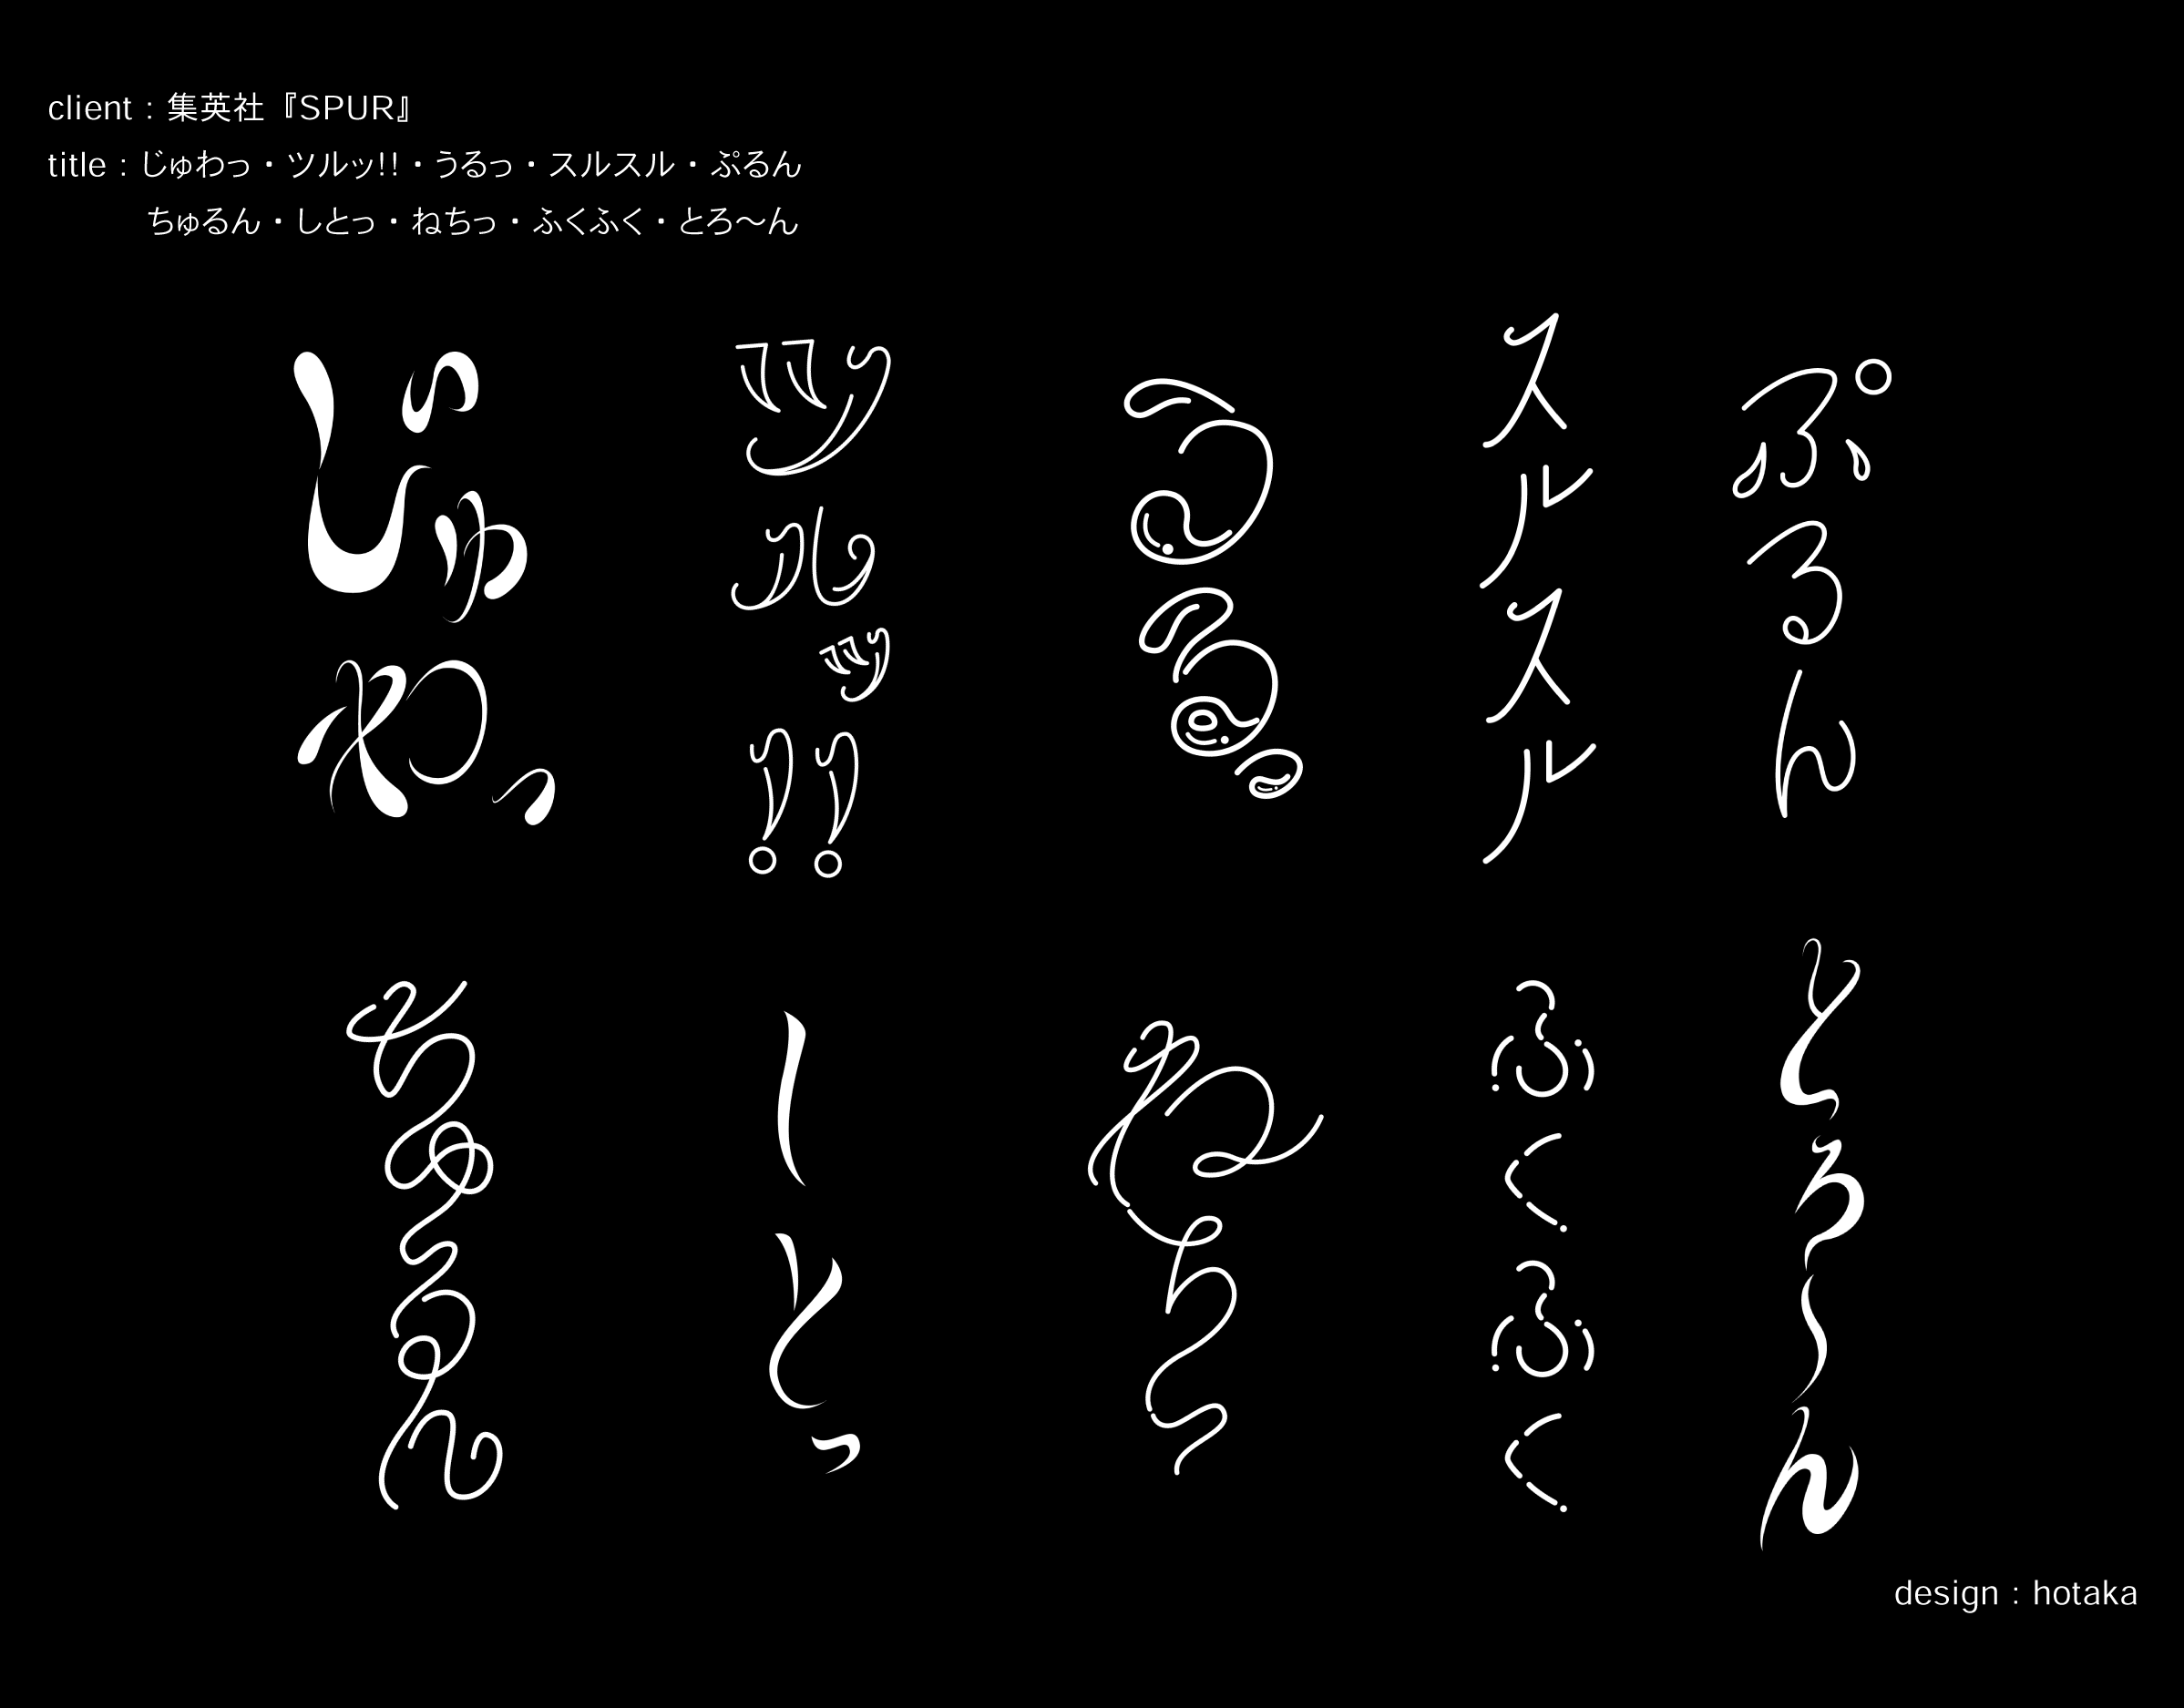 client : 集英社『SPUR』
title : じゅわっ・ツルッ!!・うるっ・スルスル・ぷるん
ちゅるん・しとっ・ねちっ・ふくふく・とろ〜ん
じゅわっ
ツルッ!!
うるっ
スルスル
ぷるん
ちゅるん
しとっ
ねちっ
ふくふく
とろ〜ん
design : hotaka